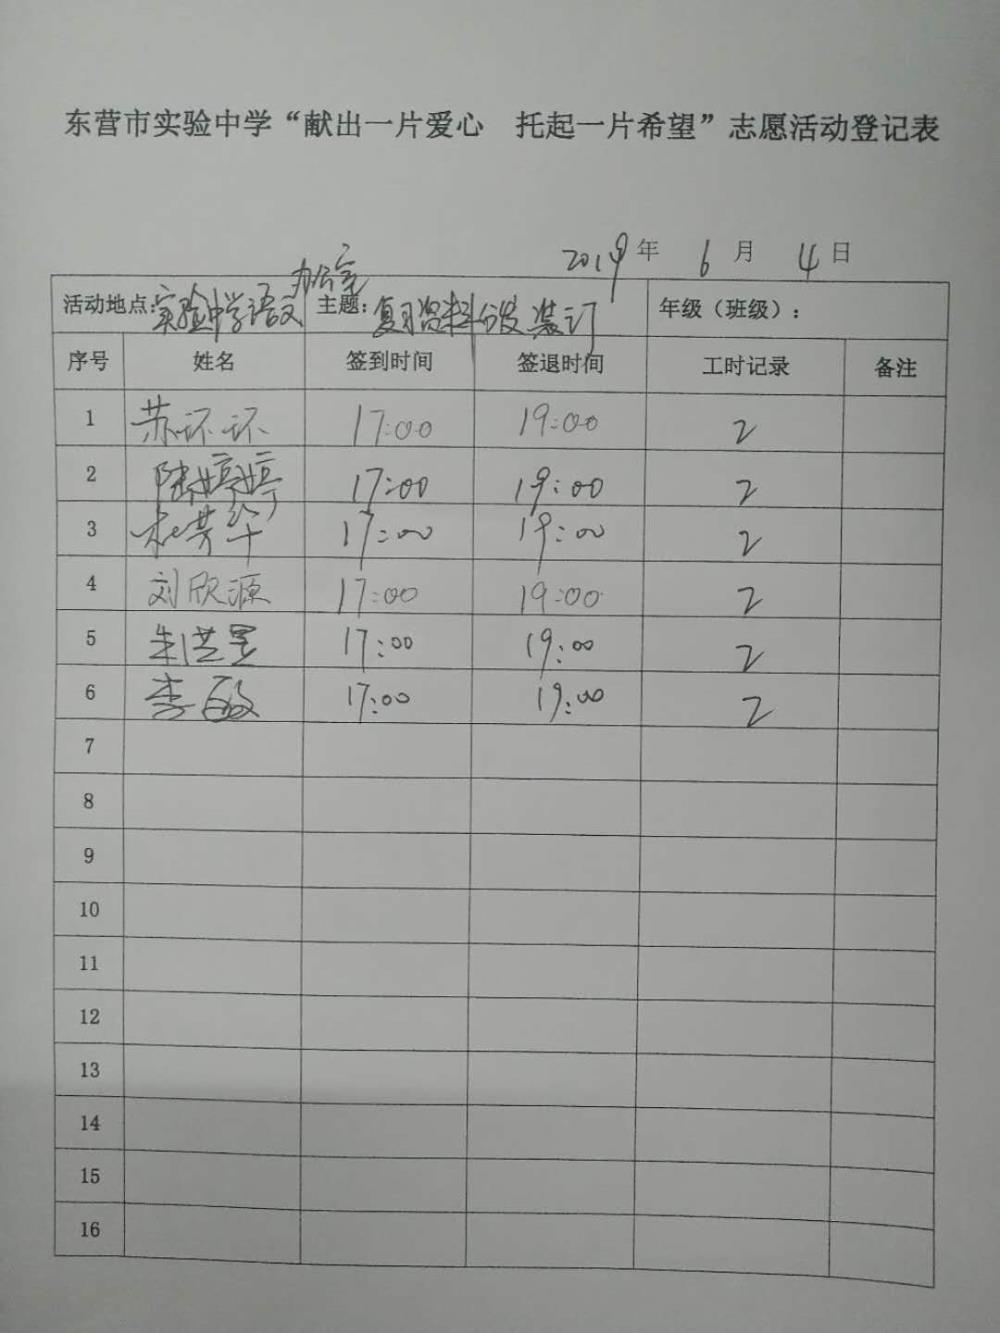 东营市实验中学“献出一片爱心 托起一片希望”志愿活动登记表
2019年 6月 4日
活动地点:实验中学语文办公室 主题:复习资料分发装订 年级(班级):
序号 姓名 签到时间 签退时间 工时记录 备注
1 苏环环 17:00 19:00 2
2 陆婷婷 17:00 19:00 2
3 杜芳华 17:00 19:00 2
4 刘欣源 17:00 19:00 2
5 朱洪昱 17:00 19:00 2
6 李敏 17:00 19:00 2
7
8
9
10
11
12
13
14
15
16